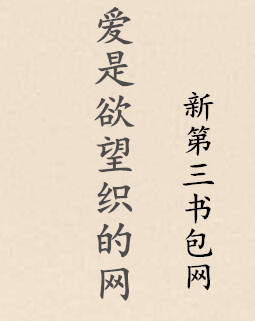 爱是欲望织的网
新第三书包网